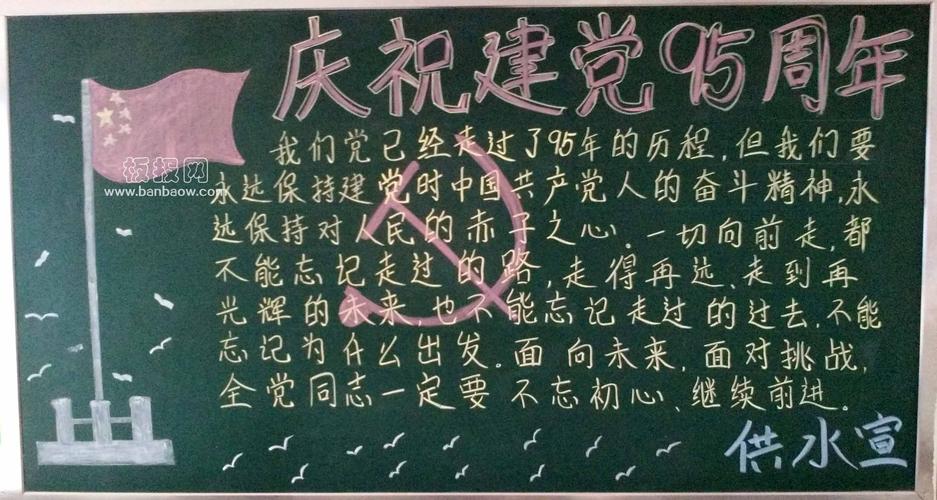 庆祝建党95周年
我们党已经走过了95年的历程,但我们要
永远保持建党时中国共产党人的奋斗精神,永
远保持对人民的赤子之心。一切向前走,都
不能忘记走过的路,走得再远、走到再
光辉的未来,也不能忘记走过的过去,不能
忘记为什么出发。面向未来,面对挑战,
全党同志一定要不忘初心、继续前进。
供水宣
板报网
www.banbaow.com